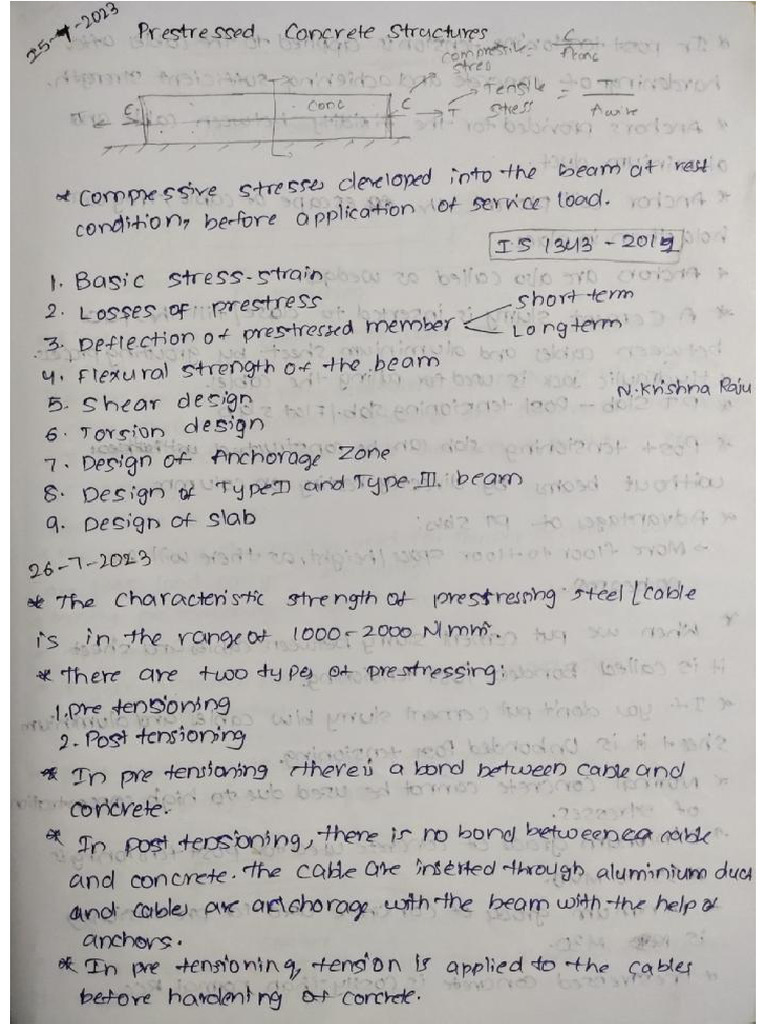 25-7-2023
Prestressed Concrete Structures
compressive stress = C / Aconc
Tensile stress = T / Awire
C conc C T
* compressive stresses developed into the beam at rest
condition, before application of service load.
IS 1343 - 2012
1. Basic stress-strain
2. Losses of prestress
3. Deflection of prestressed member < short term
Long term
4. Flexural strength of the beam
5. Shear design
N. Krishna Raju
6. Torsion design
7. Design of Anchorage Zone
8. Design of Type II and Type III beam
9. Design of slab
26-7-2023
* The characteristic strength of prestressing steel/cable
is in the range of 1000 - 2000 N/mm².
* There are two types of prestressing:
1. Pre tensioning
2. Post tensioning
* In pre tensioning there is a bond between cable and
concrete.
* In post tensioning, there is no bond between cable
and concrete. The cable are inserted through aluminium duct
and cables are anchorage with the beam with the help of
anchors.
* In pre tensioning, tension is applied to the cables
before hardening of concrete.